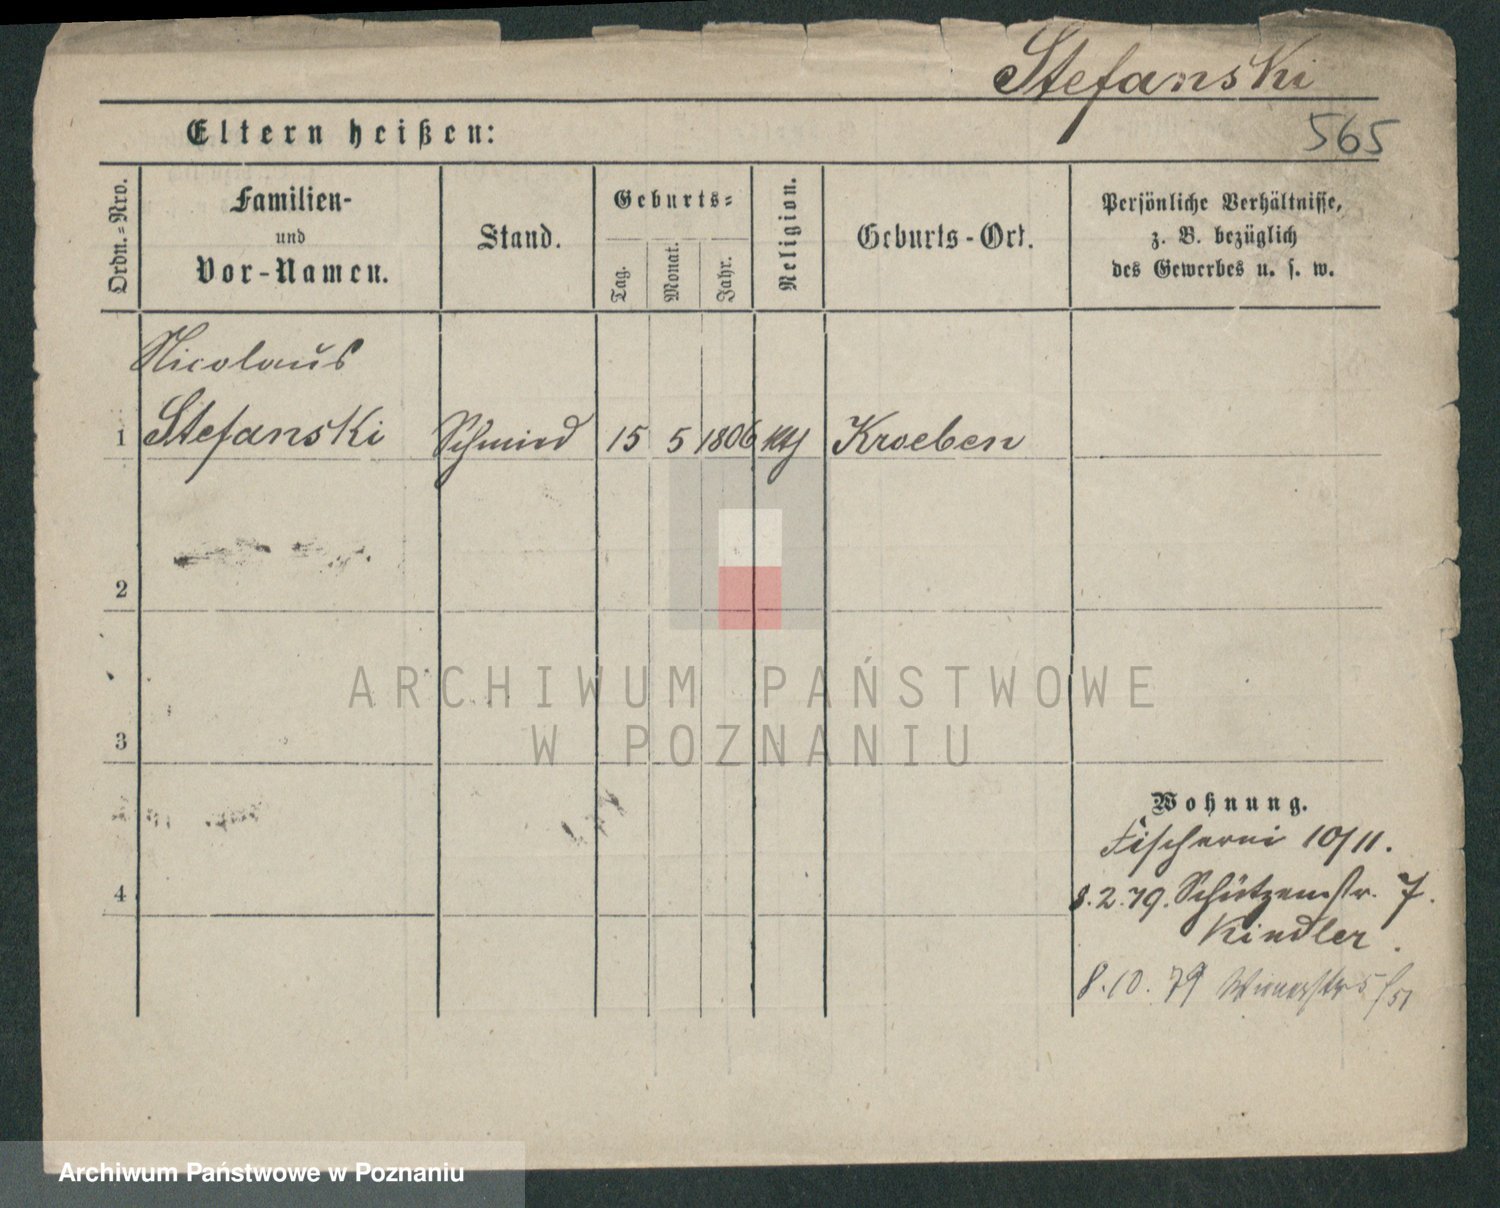 Stefanski
565
Eltern heißen:
Ordn.=Nro.
Familien-
und
Vor-Namen.
Stand.
Geburts=
Tag.
Monat.
Jahr.
Religion.
Geburts-Ort.
Persönliche Verhältnisse,
z. B. bezüglich
des Gewerbes u. s. w.
Nicolaus
1 Stefanski Schmied 15 5 1806 kth Kroeben
2
3
4
Wohnung.
Fischerei 10/11.
8.2.79. Schützenstr. 7.
Kindler.
8.10.79
ARCHIWUM PAŃSTWOWE
W POZNANIU
Archiwum Państwowe w Poznaniu